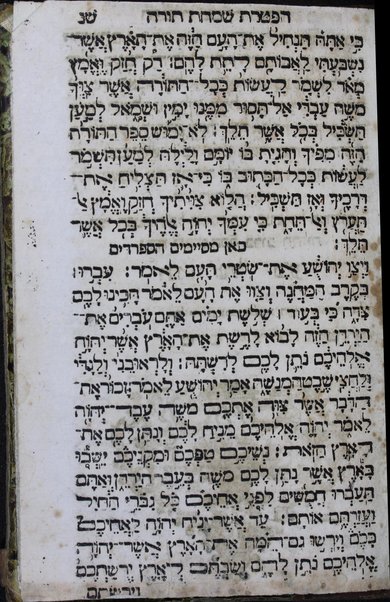 הפטרת שמחת תורה שנ
כִּי אַתָּה תַּנְחִיל אֶת־הָעָם הַזֶּה אֶת־הָאָרֶץ אֲשֶׁר
נִשְׁבַּעְתִּי לַאֲבוֹתָם לָתֵת לָהֶם׃ רַק חֲזַק וֶאֱמַץ
מְאֹד לִשְׁמֹר לַעֲשׂוֹת כְּכָל־הַתּוֹרָה אֲשֶׁר צִוְּךָ
מֹשֶׁה עַבְדִּי אַל־תָּסוּר מִמֶּנּוּ יָמִין וּשְׂמֹאל לְמַעַן
תַּשְׂכִּיל בְּכֹל אֲשֶׁר תֵּלֵךְ׃ לֹא יָמוּשׁ סֵפֶר הַתּוֹרָה
הַזֶּה מִפִּיךָ וְהָגִיתָ בּוֹ יוֹמָם וָלַיְלָה לְמַעַן תִּשְׁמֹר
לַעֲשׂוֹת כְּכָל־הַכָּתוּב בּוֹ כִּי־אָז תַּצְלִיחַ אֶת־
דְּרָכֶיךָ וְאָז תַּשְׂכִּיל׃ הֲלוֹא צִוִּיתִיךָ חֲזַק וֶאֱמָץ אַל
תַּעֲרֹץ וְאַל־תֵּחָת כִּי עִמְּךָ יְהוָה אֱלֹהֶיךָ בְּכֹל אֲשֶׁר
תֵּלֵךְ׃
כאן מסיימים הספרדים
וַיְצַו יְהוֹשֻׁעַ אֶת־שֹׁטְרֵי הָעָם לֵאמֹר׃ עִבְרוּ׀
בְּקֶרֶב הַמַּחֲנֶה וְצַוּוּ אֶת הָעָם לֵאמֹר הָכִינוּ לָכֶם
צֵדָה כִּי בְּעוֹד׀ שְׁלֹשֶׁת יָמִים אַתֶּם עֹבְרִים אֶת־
הַיַּרְדֵּן הַזֶּה לָבוֹא לָרֶשֶׁת אֶת־הָאָרֶץ אֲשֶׁר יְהוָה
אֱלֹהֵיכֶם נֹתֵן לָכֶם לְרִשְׁתָּהּ׃ וְלָראוּבֵנִי וְלַגָּדִי
וְלַחֲצִי שֵׁבֶט הַמְנַשֶּׁה אָמַר יְהוֹשֻׁעַ לֵאמֹר׃ זָכוֹר אֶת־
הַדָּבָר אֲשֶׁר צִוָּה אֶתְכֶם מֹשֶׁה עֶבֶד־יְהוָה
לֵאמֹר יְהוָה אֱלֹהֵיכֶם מֵנִיחַ לָכֶם וְנָתַן לָכֶם אֶת־
הָאָרֶץ הַזֹּאת׃ נְשֵׁיכֶם טַפְּכֶם וּמִקְנֵיכֶם יֵשְׁבוּ
בָּאָרֶץ אֲשֶׁר נָתַן לָכֶם מֹשֶׁה בְּעֵבֶר הַיַּרְדֵּן וְאַתֶּם
תַּעַבְרוּ חֲמֻשִׁים לִפְנֵי אֲחֵיכֶם כֹּל גִּבּוֹרֵי הַחַיִל
וַעֲזַרְתֶּם אוֹתָם׃ עַד אֲשֶׁר־יָנִיחַ יְהוָה לַאֲחֵיכֶם
כָּכֶם וְיָרְשׁוּ גַם־הֵמָּה אֶת־הָאָרֶץ אֲשֶׁר־יְהוָה
אֱלֹהֵיכֶם נֹתֵן לָהֶם וְשַׁבְתֶּם לְאֶרֶץ יְרֻשַּׁתְכֶם
וירשתם